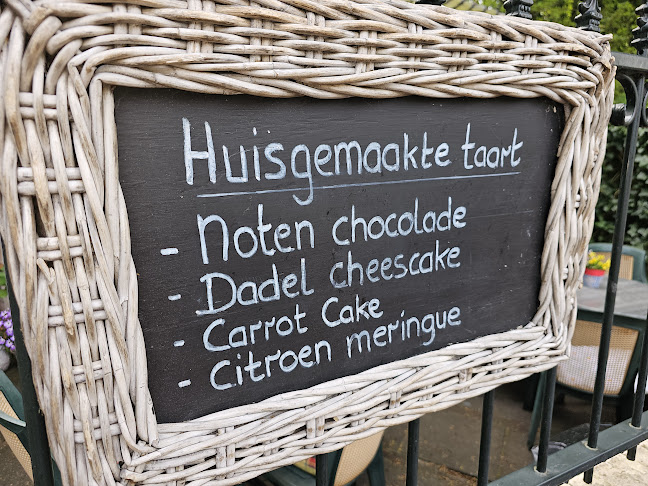 Huisgemaakte taart
- Noten chocolade
- Dadel cheescake
- Carrot Cake
- Citroen meringue